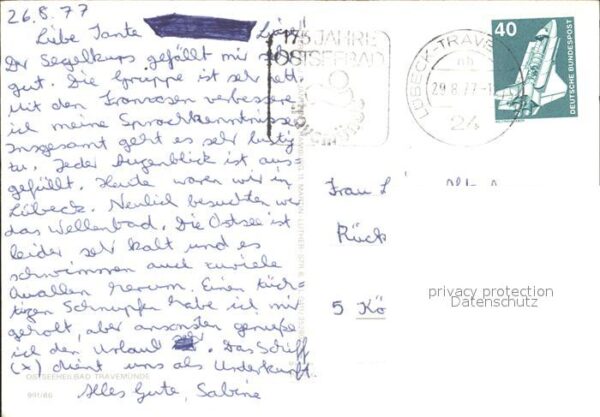 26.8.77
Liebe Tante
Der Segelkurs gefällt mir sehr
gut. Die Gruppe ist sehr nett
Mit den Franzosen verbessere
ich meine Sprachkenntnisse
Insgesamt geht es sehr lustig
zu. Jeder Augenblick ist aus
gefüllt. Heute waren wir in
Lübeck. Neulich besuchten wir
das Wellenbad. Die Ostsee ist
leider sehr kalt und es
schwimmen auch zuviele
Quallen herum. Einen tüch-
tigen Schnupfen habe ich mir
geholt, aber ansonsten genieße
ich den Urlaub sehr. Das Schiff
(x) dient uns als Unterkunft
Alles Gute, Sabine
OSTSEEHEILBAD TRAVEMÜNDE
991/66
175 JAHRE
OSTSEEBAD
TRAVEMÜNDE
LÜBECK-TRAVEM
29.8.77
24
40
DEUTSCHE BUNDESPOST
Frau
Rück
5 Kö
privacy protection
Datenschutz